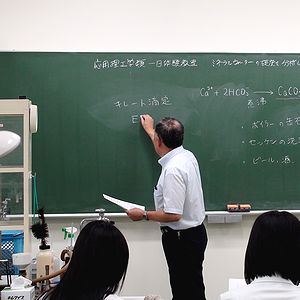 応用理工学類 一日体験教室 ミネラルウォーターの硬度を分析し
キレート滴定
E
Ca²⁺ + 2HCO₃⁻ → CaCO
煮沸
・ボイラーの缶石
・セッケンの洗
・ビール、酒
キムワイプ